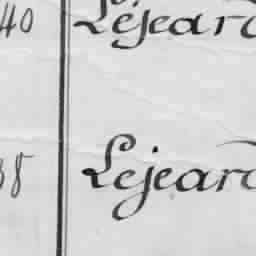 40 Lejeard
38 Lejeard